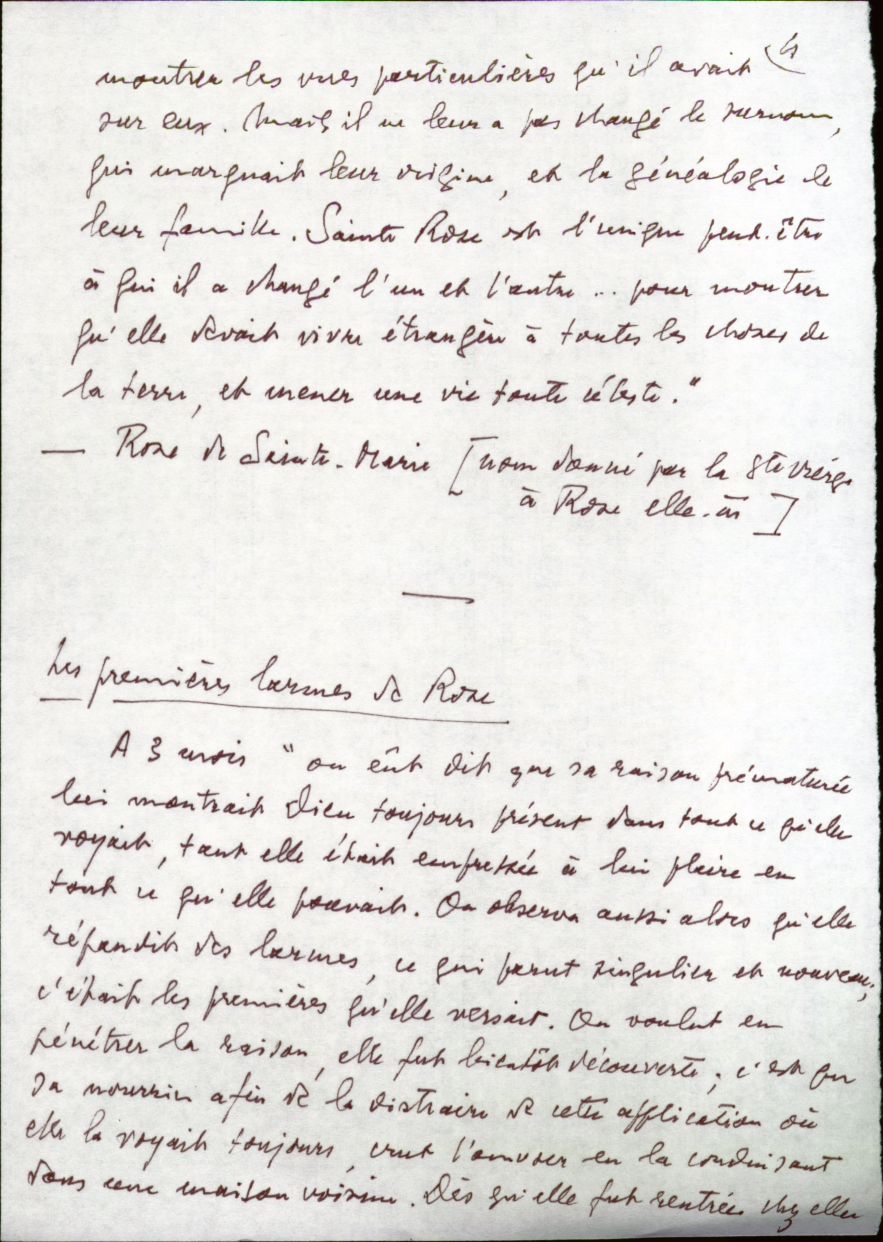 4
montrer les vues particulières qu'il avait
sur eux. Mais il ne leur a pas changé le surnom,
qui marquait leur origine, et la généalogie de
leur famille. Sainte Rose est l'unique peut-être
à qui il a changé l'un et l'autre ... pour montrer
qu'elle devait vivre étrangère à toutes les choses de
la terre, et mener une vie toute céleste."
— Rose de Sainte-Marie [nom donné par la Ste Vierge
à Rose elle-m̄]
—
Les premières larmes de Rose
A 3 mois " on eût dit que sa raison prématurée
lui montrait Dieu toujours présent dans tout ce qu'elle
voyait, tant elle était empressée à lui plaire en
tout ce qu'elle pouvait. On observa aussi alors qu'elle
répandit des larmes, ce qui parut singulier et nouveau;
c'était les premières qu'elle versait. On voulut en
pénétrer la raison, elle fut bientôt découverte; c'est que
sa nourrice afin de la distraire de cette application où
elle la voyait toujours, crut l'amuser en la conduisant
dans une maison voisine. Dès qu'elle fut rentrée chez elle